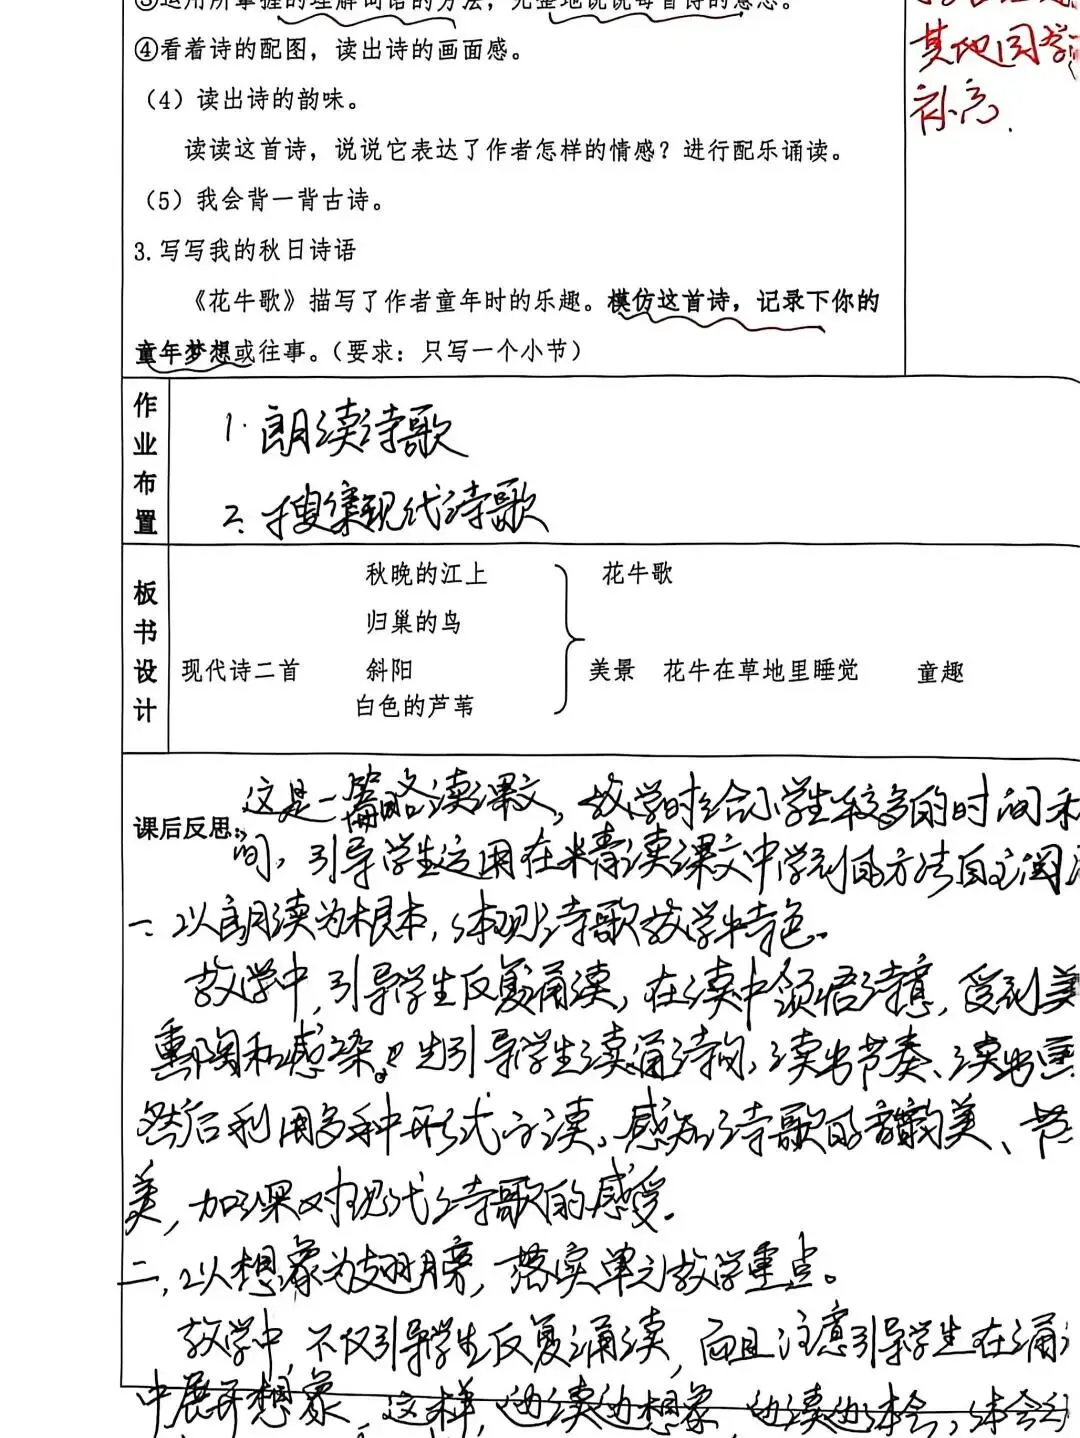 ③运用所掌握的理解词语的方法，完整地说说每首诗的意思。
④看着诗的配图，读出诗的画面感。
其他同学
补充.
（4）读出诗的韵味。
读读这首诗，说说它表达了作者怎样的情感？进行配乐诵读。
（5）我会背一背古诗。
3.写写我的秋日诗语
《花牛歌》描写了作者童年时的乐趣。模仿这首诗，记录下你的
童年梦想或往事。（要求：只写一个小节）
作业布置
1.朗读诗歌
2.搜集现代诗歌
板书设计
秋晚的江上 花牛歌
归巢的鸟
现代诗二首 斜阳 美景 花牛在草地里睡觉 童趣
白色的芦苇
课后反思：
这是一篇略读课文，教学时给小学生较多的时间和
间，引导学生运用在精读课文中学到的方法自主阅
一、以朗读为根本，体现诗歌教学特色。
教学中，引导学生反复诵读，在读中领悟诗意，受到美
熏陶和感染。先引导学生读诵诗句，读出节奏、读出
然后利用多种形式读，感知诗歌的音韵美、节
美，加深对现代诗歌的感受。
二、以想象为翅膀，落实单元教学重点。
教学中，不仅引导学生反复诵读，而且注意引导学生在诵
中展开想象，这样，边读边想象，边读边体会，体会